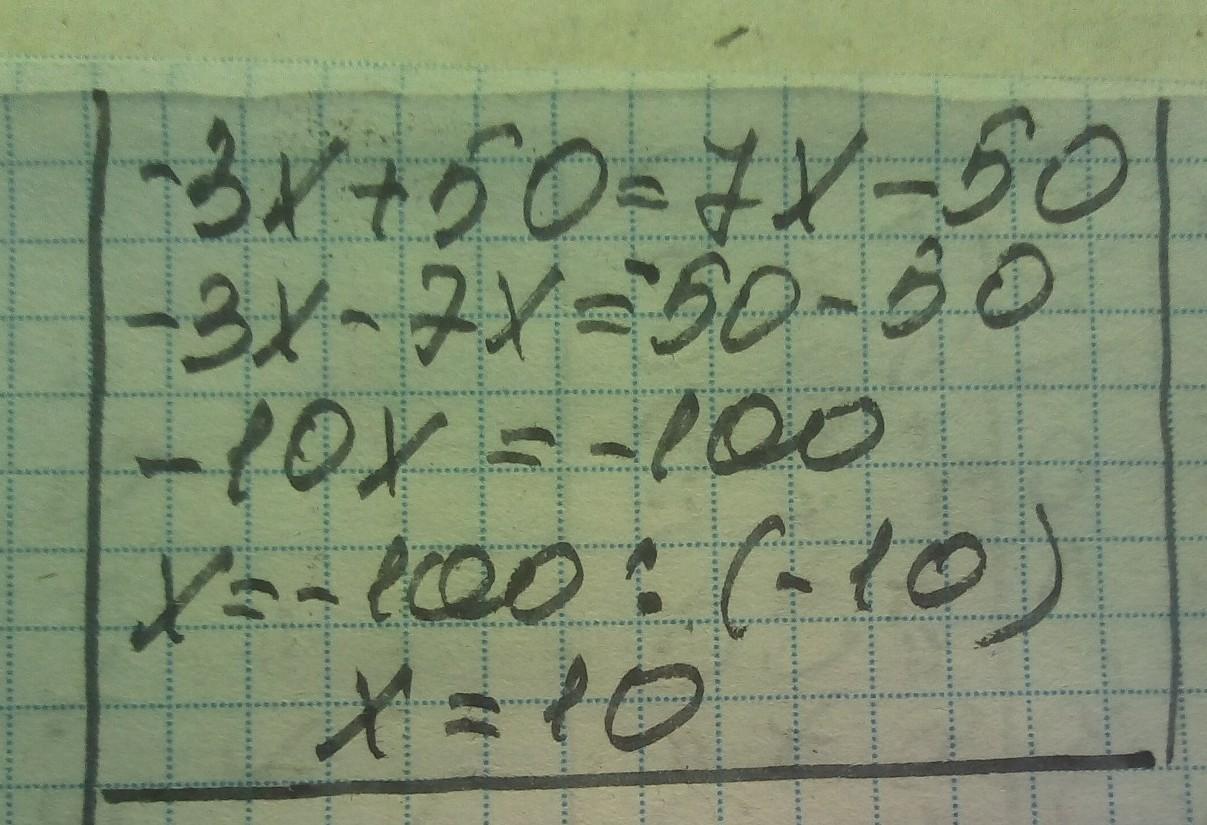 -3x+50=7x-50
-3x-7x=-50-50
-10x=-100
x=-100:(-10)
x=10